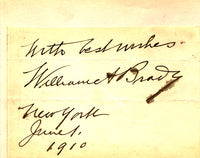 With best wishes.
William A Brady
New York
June 1.
1910